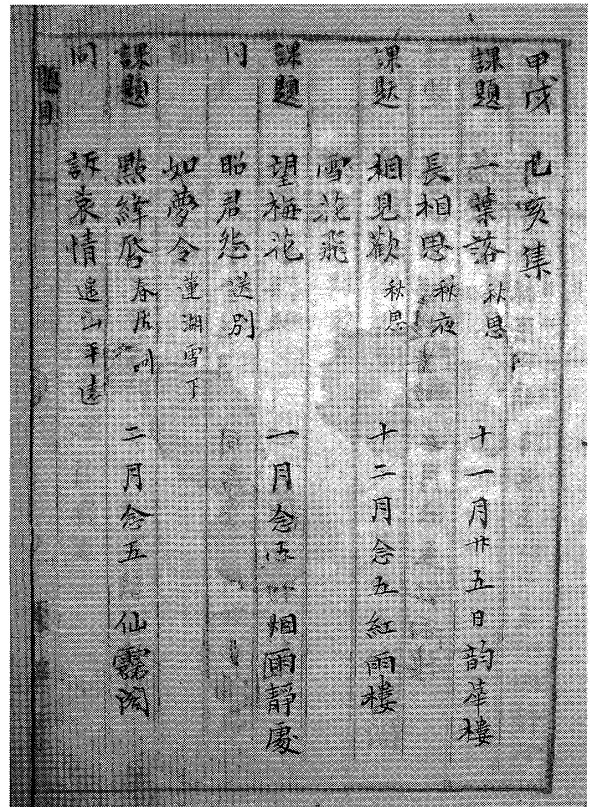 甲戌 乙亥集
課題 一葉落 秋思 十一月廿五日 韵華樓
長相思 秋夜
課題 相見歡 秋思 十二月念五 紅雨樓
雪花飛
課題 望梅花 一月念五 烟雨靜處
昭君怨 送別
如夢令 蓮湖雪丁
課題 點絳唇 春居 二月念五 仙霞閣
同 訴衷情 遙山平遠
題目